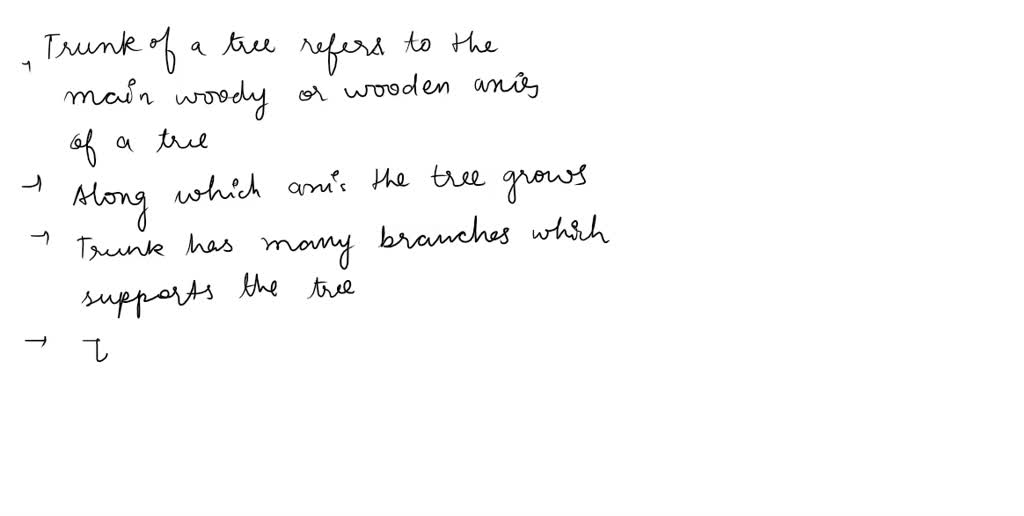 → Trunk of a tree refers to the
main woody or wooden axis
of a tree
→ Along which axis the tree grows
→ Trunk has many branches which
supports the tree
→ T